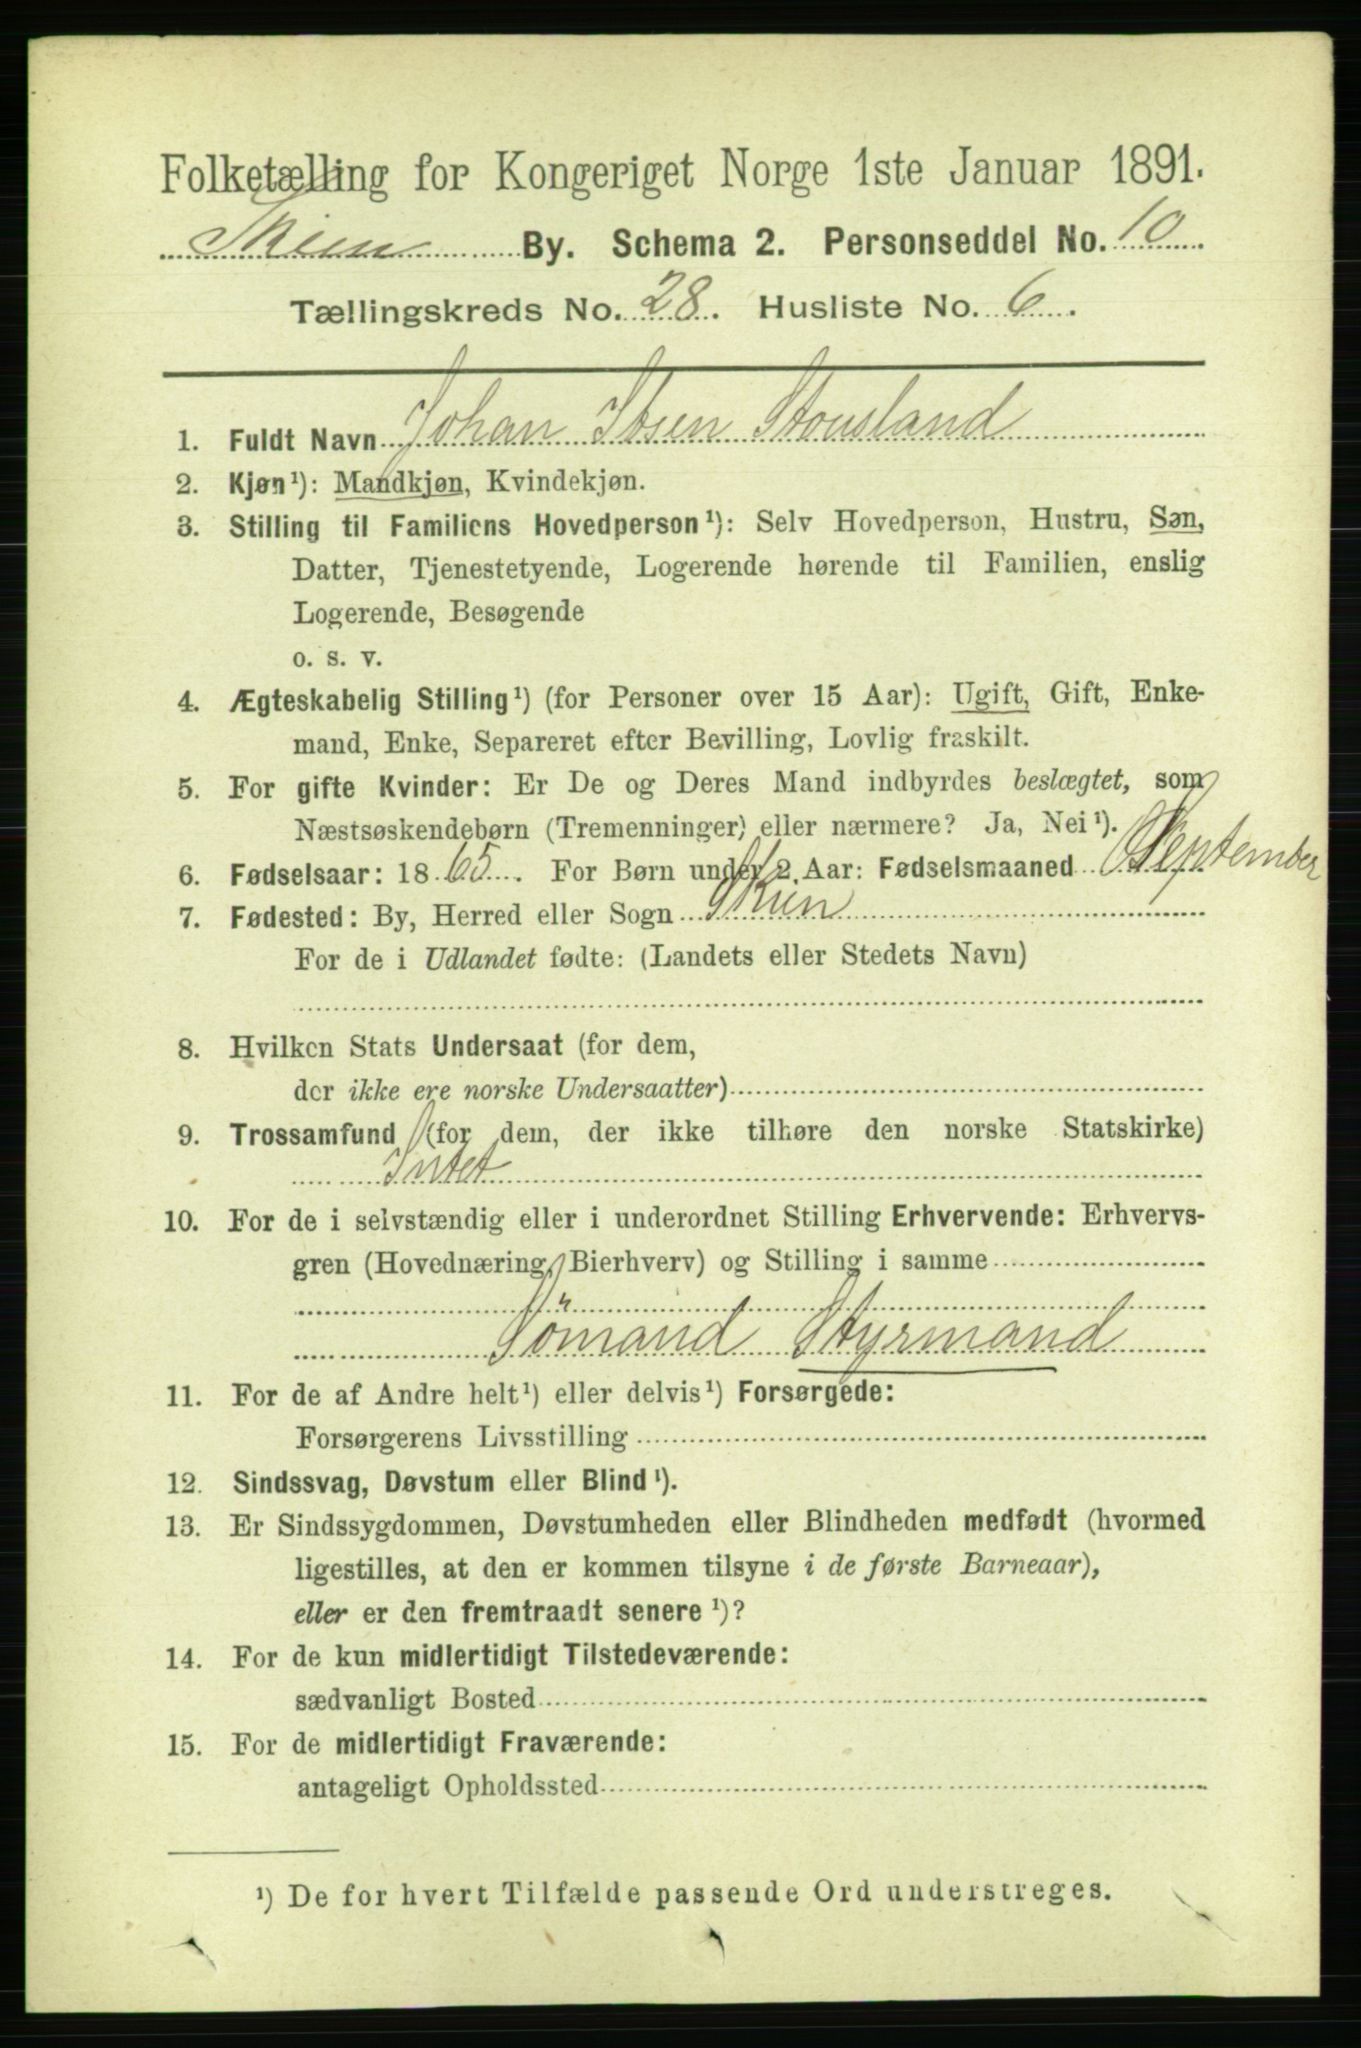 Folketælling for Kongeriget Norge 1ste Januar 1891.
Skien By. Schema 2. Personseddel No. 10
Tællingskreds No. 28. Husliste No. 6.
1. Fuldt Navn Johan Ibsen Stousland
2. Kjøn¹): Mandkjøn, Kvindekjøn.
3. Stilling til Familiens Hovedperson¹): Selv Hovedperson, Hustru, Søn,
Datter, Tjenestetyende, Logerende hørende til Familien, enslig
Logerende, Besøgende
o. s. v.
4. Ægteskabelig Stilling¹) (for Personer over 15 Aar): Ugift, Gift, Enke-
mand, Enke, Separeret efter Bevilling, Lovlig fraskilt.
5. For gifte Kvinder: Er De og Deres Mand indbyrdes beslægtet, som
Næstsøskendebørn (Tremenninger) eller nærmere? Ja, Nei¹).
6. Fødselsaar: 1865. For Børn under 2 Aar: Fødselsmaaned September
7. Fødested: By, Herred eller Sogn Skien
For de i Udlandet fødte: (Landets eller Stedets Navn)
8. Hvilken Stats Undersaat (for dem,
der ikke ere norske Undersaatter)
9. Trossamfund (for dem, der ikke tilhøre den norske Statskirke)
Intet
10. For de i selvstændig eller i underordnet Stilling Erhvervende: Erhvervs-
gren (Hovednæring, Bierhverv) og Stilling i samme
Sömand Styrmand
11. For de af Andre helt¹) eller delvis¹) Forsørgede:
Forsørgerens Livsstilling
12. Sindssvag, Døvstum eller Blind¹).
13. Er Sindssygdommen, Døvstumheden eller Blindheden medfødt (hvormed
ligestilles, at den er kommen tilsyne i de første Barneaar),
eller er den fremtraadt senere¹)?
14. For de kun midlertidigt Tilstedeværende:
sædvanligt Bosted
15. For de midlertidigt Fraværende:
antageligt Opholdssted
¹) De for hvert Tilfælde passende Ord understreges.